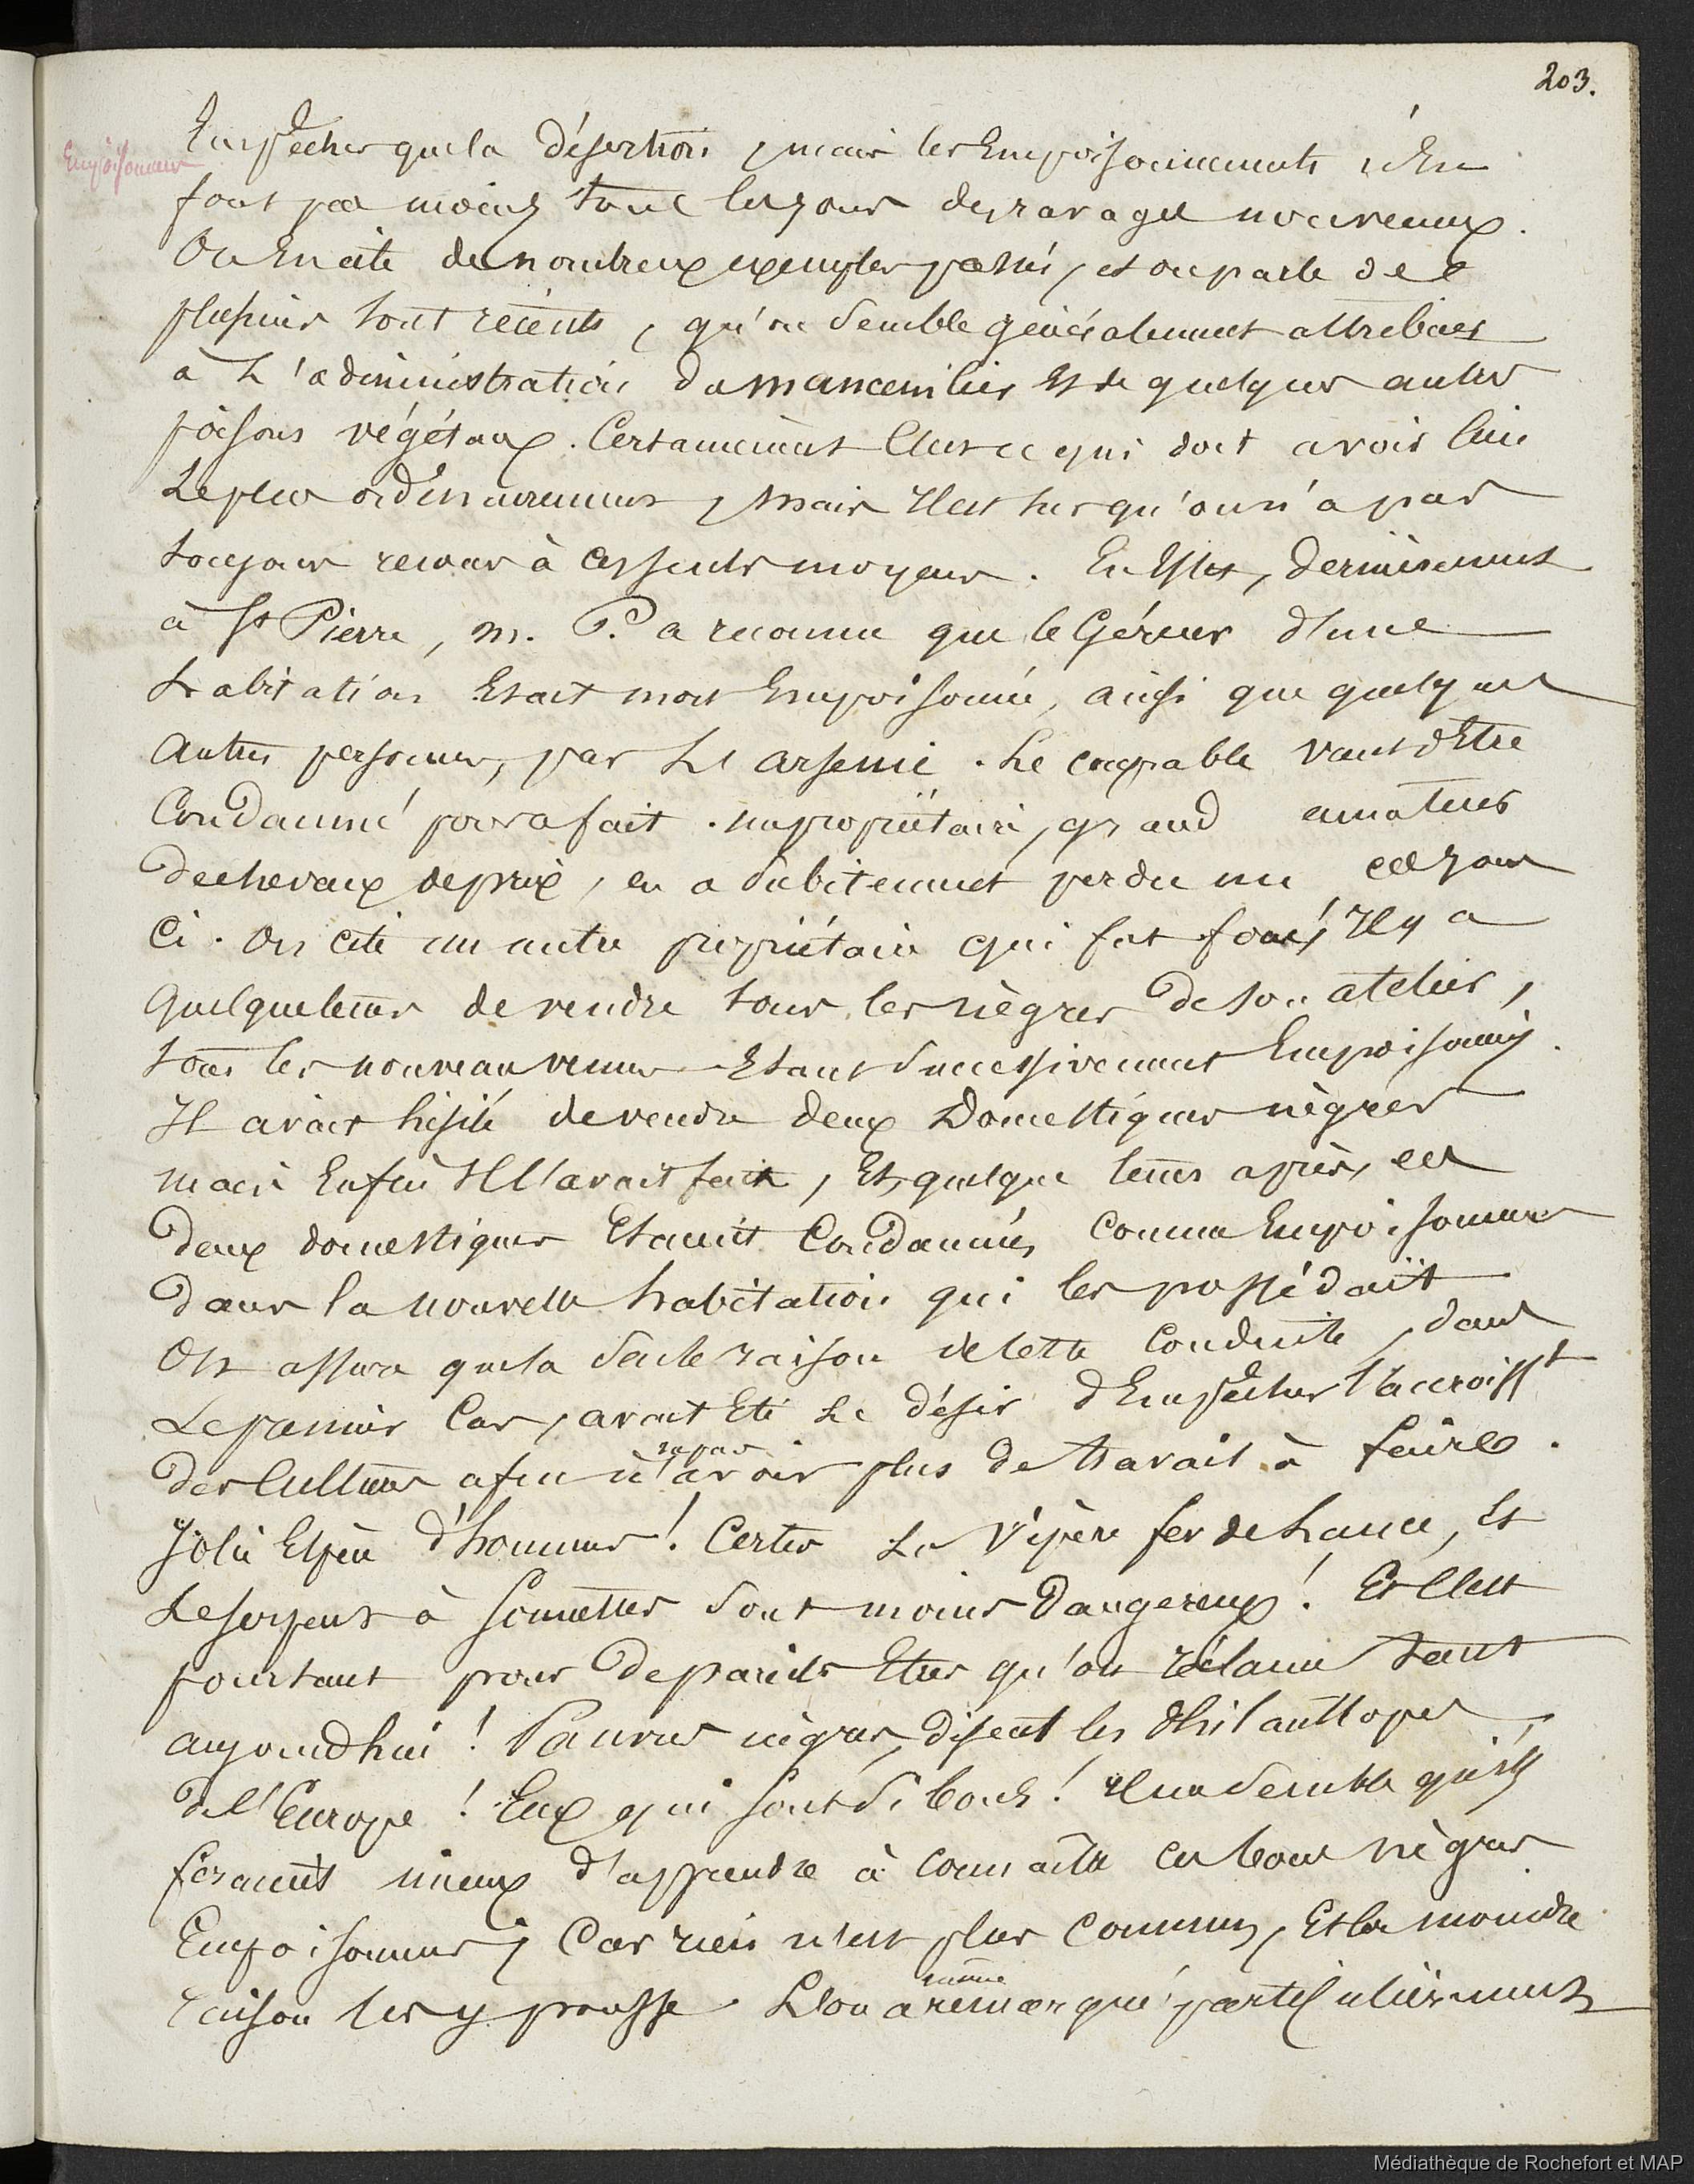 203.
Empoisonneurs
Empêcher que la Désertion, mais les Empoisonnements n'en
font pas moins tous les jours des ravages nouveaux.
On en cite de nombreux exemples passés, et on parle de
plusieurs tout récents, qu'on semble généralement attribuer
à L'administration du mancenilier et de quelques autres
poisons végétaux. Certainement C'est ce qui doit avoir lieu
Le plus ordinairement, mais Il est sur qu'on n'a pas
toujours recours à ces seuls moyens. En Effet, Dernièrement
à St Pierre, M. P. a reconnu que le Géreur d'une
habitation Etait mort Empoisonné, ainsi que quelques
autres personnes, par L'arsenic. Le coupable vient d'Etre
Condamné pour ce fait. un propriétaire, grand amateur
de chevaux de prix, en a subitement perdu un ces jours
Ci. On cite un autre propriétaire qui fut forcé, Il y a
quelque tems de vendre tous les nègres de son atelier,
tous les nouveau venus Etant Successivement Empoisonnés.
Il avait hésité de vendre deux Domestiques nègres
mais Enfin Il l'avait fait, Et, quelque tems après, ces
deux domestiques Etaient Condamnés Comme Empoisonneurs
Dans la nouvelle habitation qui les possédait
On assura que la Seule raison de cette Conduite, dans
Le premier Cas, avait Eté Le Désir d'Empêcher l'accroisst
Des Cultures afin de n'avoir pas plus De travail à faire.
Jolie Espèce d'hommes! Certes La Vipère fer de Lance, Et
Le serpent à Sonnettes Sont moins Dangereux! Et C'est
pourtant pour De pareils Etres qu'on réclame tant
aujourd'hui! Pauvres nègres, disent les Philanthropes
De l'Europe! Eux qui Sont Si bons! Il me semble qu'ils
feraient mieux d'apprendre à Connaître ces bons nègres
Empoisonneurs; Car rien n'est plus Commun, Et la moindre
raison les y pousse. L'on a même remarqué particulièrement
Médiathèque de Rochefort et MAP